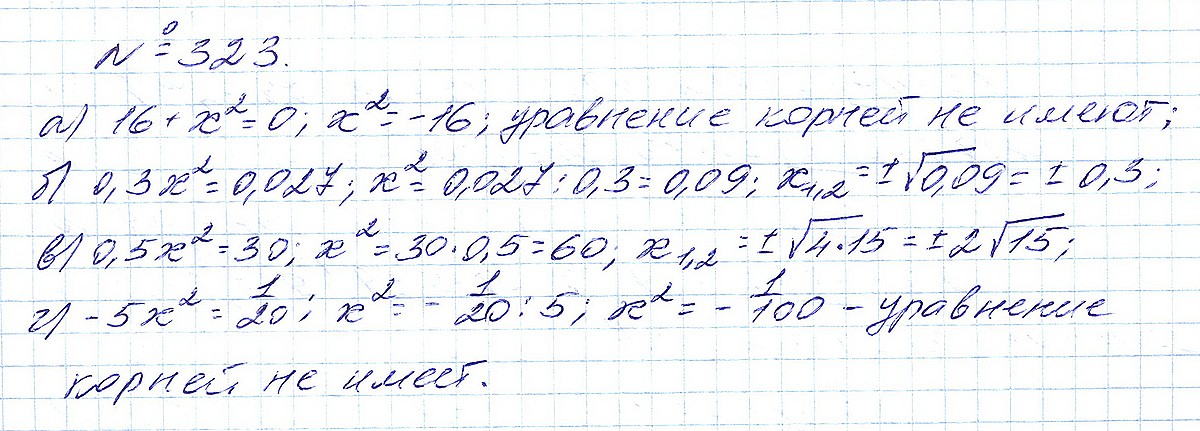 № 323.
а) 16 + x² = 0; x² = -16; уравнение корней не имеют;
б) 0,3x² = 0,027; x² = 0,027 : 0,3 = 0,09; x₁,₂ = ±√0,09 = ± 0,3;
в) 0,5x² = 30; x² = 30·0,5 = 60; x₁,₂ = ±√4·15 = ±2√15;
г) -5x² = 1/20; x² = - 1/20 : 5; x² = - 1/100 - уравнение
корней не имеет.